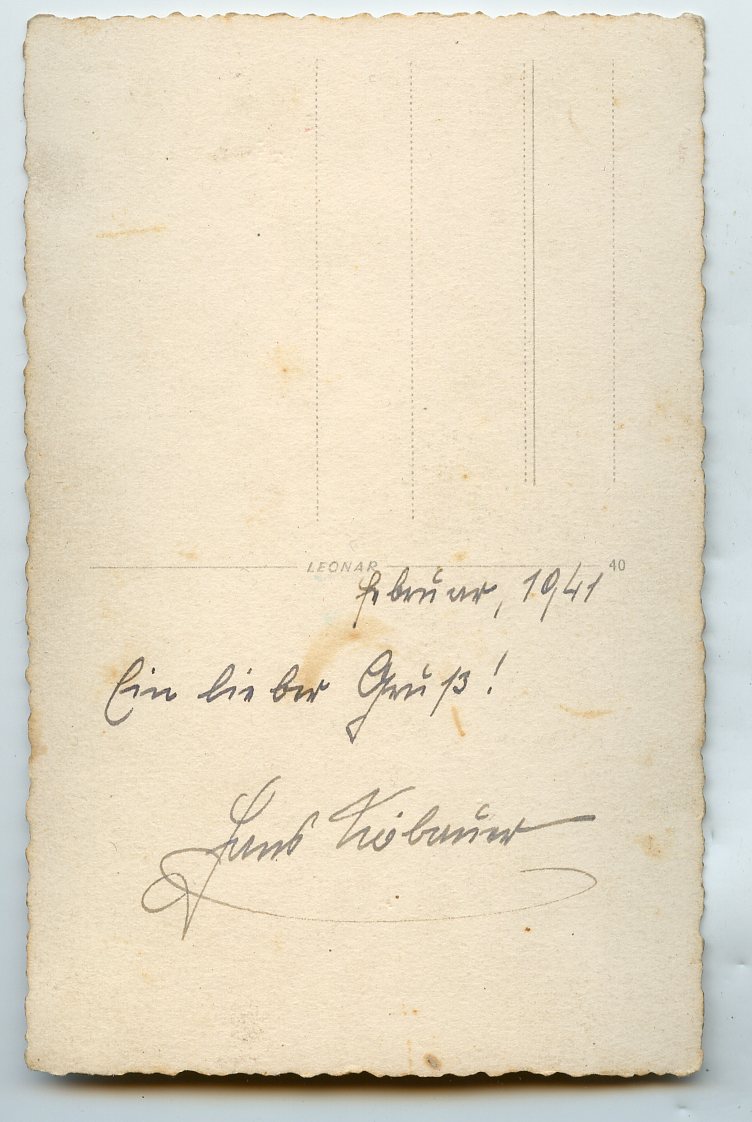 LEONAR 40
Februar, 1941
Ein lieber Gruß!
Hans